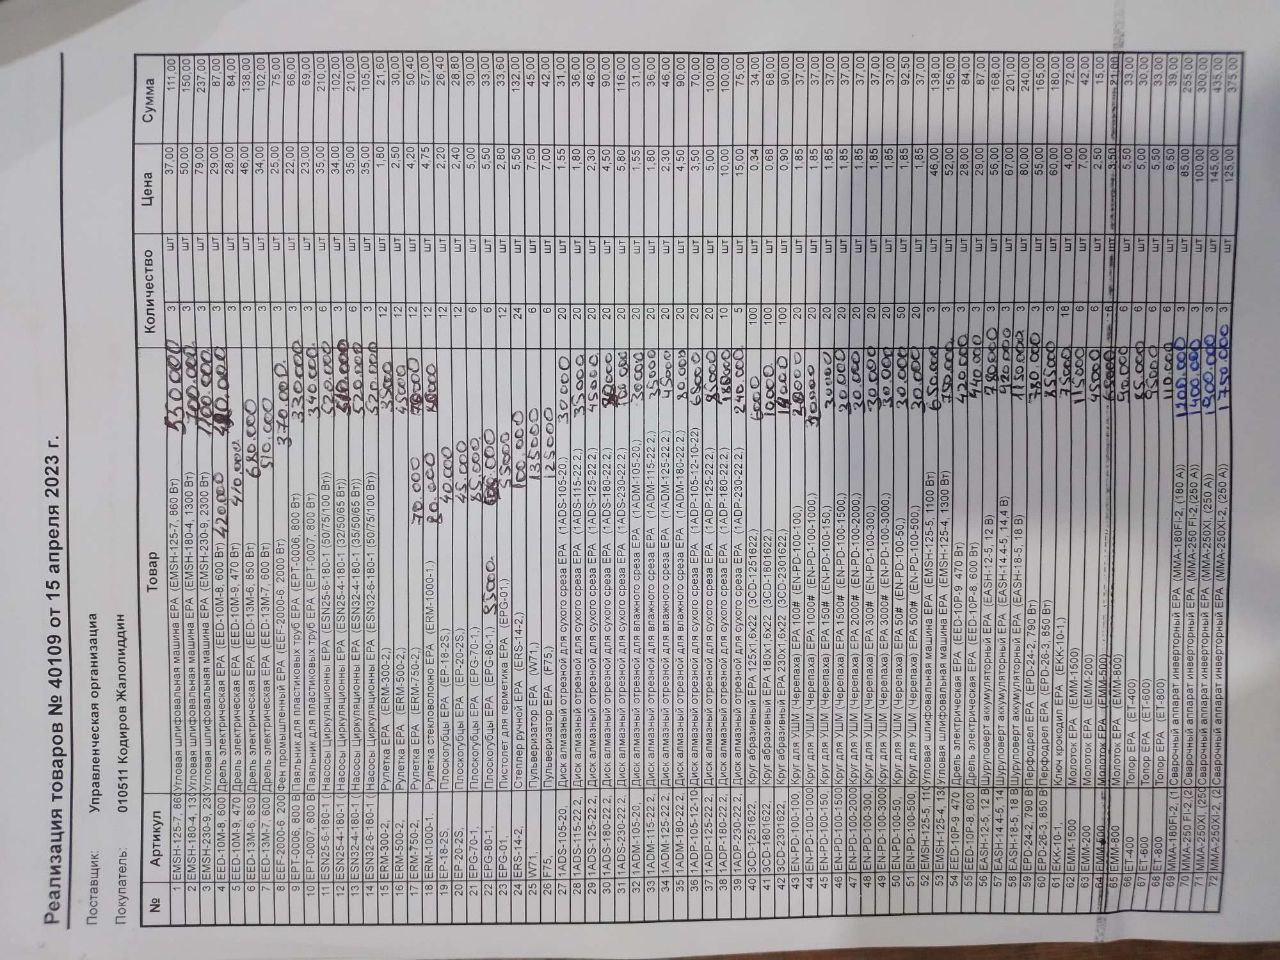 Реализация товаров № 40109 от 15 апреля 2023 г.
Поставщик: Управленческая организация
Покупатель: 010511 Кодиров Жалолиддин
№ Артикул Товар Количество Цена Сумма
1 EMSH-125-7, 860 Угловая шлифовальная машина EPA (EMSH-125-7, 860 Вт) 3 шт 37,00 111,00
2 EMSH-180-4, 130 Угловая шлифовальная машина EPA (EMSH-180-4, 1300 Вт) 3 шт 50,00 150,00
3 EMSH-230-9, 230 Угловая шлифовальная машина EPA (EMSH-230-9, 2300 Вт) 3 шт 79,00 237,00
4 EED-10M-8, 600 Дрель электрическая EPA (EED-10M-8, 600 Вт) 420.000 3 шт 29,00 87,00
5 EED-10M-9, 470 Дрель электрическая EPA (EED-10M-9, 470 Вт) 3 шт 28,00 84,00
6 EED-13M-6, 850 Дрель электрическая EPA (EED-13M-6, 850 Вт) 680.000 3 шт 46,00 138,00
7 EED-13M-7, 600 Дрель электрическая EPA (EED-13M-7, 600 Вт) 510.000 3 шт 34,00 102,00
8 EEF-2000-6 200 Фен промышленный EPA (EEF-2000-6 2000 Вт) 370.000 3 шт 25,00 75,00
9 EPT-0006, 800 В Паяльник для пластиковых труб EPA (EPT-0006, 800 Вт) 330.000 3 шт 22,00 66,00
10 EPT-0007, 800 В Паяльник для пластиковых труб EPA (EPT-0007, 800 Вт) 340.000 3 шт 23,00 69,00
11 ESN25-6-180-1 Насосы Циркуляционны EPA (ESN25-6-180-1 (50/75/100 Вт)) 520.000 6 шт 35,00 210,00
12 ESN25-4-180-1 Насосы Циркуляционны EPA (ESN25-4-180-1 (32/50/65 Вт)) 3 шт 34,00 102,00
13 ESN32-4-180-1 Насосы Циркуляционны EPA (ESN32-4-180-1 (35/50/65 Вт)) 520.000 6 шт 35,00 210,00
14 ESN32-6-180-1 Насосы Циркуляционны EPA (ESN32-6-180-1 (50/75/100 Вт)) 520.000 3 шт 35,00 105,00
15 ERM-300-2, Рулетка EPA (ERM-300-2,) 12 шт 1,80 21,60
16 ERM-500-2, Рулетка EPA (ERM-500-2,) 12 шт 2,50 30,00
17 ERM-750-2, Рулетка EPA (ERM-750-2,) 70.000 12 шт 4,20 50,40
18 ERM-1000-1, Рулетка стекловолокно EPA (ERM-1000-1,) 80.000 12 шт 4,75 57,00
19 EP-18-2S, Плоскогубцы EPA (EP-18-2S,) 40000 12 шт 2,20 26,40
20 EP-20-2S, Плоскогубцы EPA (EP-20-2S,) 45.000 12 шт 2,40 28,80
21 EPG-70-1, Плоскогубцы EPA (EPG-70-1,) 85.000 6 шт 5,00 30,00
22 EPG-80-1, Плоскогубцы EPA (EPG-80-1,) 6 шт 5,50 33,00
23 EPG-01, Пистолет для герметика EPA (EPG-01,) 55000 12 шт 2,80 33,60
24 ERS-14-2, Степлер ручной EPA (ERS-14-2,) 100.000 24 шт 5,50 132,00
25 W71, Пульверизатор EPA (W71,) 135000 6 шт 7,50 45,00
26 F75, Пульверизатор EPA (F75,) 125000 6 шт 7,00 42,00
27 1ADS-105-20, Диск алмазный отрезной для сухого среза EPA (1ADS-105-20,) 30.000 20 шт 1,55 31,00
28 1ADS-115-22.2, Диск алмазный отрезной для сухого среза EPA (1ADS-115-22.2,) 35000 20 шт 1,80 36,00
29 1ADS-125-22.2, Диск алмазный отрезной для сухого среза EPA (1ADS-125-22.2,) 45000 20 шт 2,30 46,00
30 1ADS-180-22.2, Диск алмазный отрезной для сухого среза EPA (1ADS-180-22.2,) 20 шт 4,50 90,00
31 1ADS-230-22.2, Диск алмазный отрезной для сухого среза EPA (1ADS-230-22.2,) 20 шт 5,80 116,00
32 1ADM-105-20, Диск алмазный отрезной для влажного среза EPA (1ADM-105-20,) 30000 20 шт 1,55 31,00
33 1ADM-115-22.2, Диск алмазный отрезной для влажного среза EPA (1ADM-115-22.2,) 35000 20 шт 1,80 36,00
34 1ADM-125-22.2, Диск алмазный отрезной для влажного среза EPA (1ADM-125-22.2,) 45000 20 шт 2,30 46,00
35 1ADM-180-22.2, Диск алмазный отрезной для влажного среза EPA (1ADM-180-22.2,) 80.000 20 шт 4,50 90,00
36 1ADP-105-12-10- Диск алмазный отрезной для сухого среза EPA (1ADP-105-12-10-22) 20 шт 3,50 70,00
37 1ADP-125-22.2, Диск алмазный отрезной для сухого среза EPA (1ADP-125-22.2,) 20 шт 5,00 100,00
38 1ADP-180-22.2, Диск алмазный отрезной для сухого среза EPA (1ADP-180-22.2,) 10 шт 10,00 100,00
39 1ADP-230-22.2, Диск алмазный отрезной для сухого среза EPA (1ADP-230-22.2,) 240.000 5 шт 15,00 75,00
40 3CD-1251622, Круг абразивный EPA 125x1.6x22 (3CD-1251622,) 6000 100 шт 0,34 34,00
41 3CD-1801622, Круг абразивный EPA 180x1.6x22 (3CD-1801622,) 10000 100 шт 0,68 68,00
42 3CD-2301622, Круг абразивный EPA 230x1.6x22 (3CD-2301622,) 100 шт 0,90 90,00
43 EN-PD-100-100, Круг для УШМ (Черепаха) EPA 100# (EN-PD-100-100,) 20 шт 1,85 37,00
44 EN-PD-100-1000 Круг для УШМ (Черепаха) EPA 1000# (EN-PD-100-1000,) 30000 20 шт 1,85 37,00
45 EN-PD-100-150, Круг для УШМ (Черепаха) EPA 150# (EN-PD-100-150,) 30000 20 шт 1,85 37,00
46 EN-PD-100-1500 Круг для УШМ (Черепаха) EPA 1500# (EN-PD-100-1500,) 30.000 20 шт 1,85 37,00
47 EN-PD-100-2000 Круг для УШМ (Черепаха) EPA 2000# (EN-PD-100-2000,) 30.000 20 шт 1,85 37,00
48 EN-PD-100-300, Круг для УШМ (Черепаха) EPA 300# (EN-PD-100-300,) 30.000 20 шт 1,85 37,00
49 EN-PD-100-3000 Круг для УШМ (Черепаха) EPA 3000# (EN-PD-100-3000,) 30.000 20 шт 1,85 37,00
50 EN-PD-100-50, Круг для УШМ (Черепаха) EPA 50# (EN-PD-100-50,) 30.000 50 шт 1,85 92,50
51 EN-PD-100-500, Круг для УШМ (Черепаха) EPA 500# (EN-PD-100-500,) 30.000 20 шт 1,85 37,00
52 EMSH-125-5, 110 Угловая шлифовальная машина EPA (EMSH-125-5, 1100 Вт) 650.000 3 шт 46,00 138,00
53 EMSH-125-4, 130 Угловая шлифовальная машина EPA (EMSH-125-4, 1300 Вт) 750.000 3 шт 52,00 156,00
54 EED-10P-9 470 Дрель электрическая EPA (EED-10P-9 470 Вт) 420.000 3 шт 28,00 84,00
55 EED-10P-8, 600 Дрель электрическая EPA (EED-10P-8, 600 Вт) 440.000 3 шт 29,00 87,00
56 EASH-12-5, 12 В Шуруповерт аккумуляторный EPA (EASH-12-5, 12 В) 780.000 3 шт 56,00 168,00
57 EASH-14.4-5, 14, Шуруповерт аккумуляторный EPA (EASH-14.4-5, 14,4 В) 3 шт 67,00 201,00
58 EASH-18-5, 18 В Шуруповерт аккумуляторный EPA (EASH-18-5, 18 В) 3 шт 80,00 240,00
59 EPD-24-2, 790 Вт Перфодрел EPA (EPD-24-2, 790 Вт) 780.000 3 шт 55,00 165,00
60 EPD-26-3, 850 Вт Перфодрел EPA (EPD-26-3, 850 Вт) 3 шт 60,00 180,00
61 EKK-10-1, Ключ крокодил EPA (EKK-10-1,) 75000 18 шт 4,00 72,00
62 EMM-1500 Молоток EPA (EMM-1500) 6 шт 7,00 42,00
63 EMM-200 Молоток EPA (EMM-200) 45000 6 шт 2,50 15,00
64 EMM-500 Молоток EPA (EMM-500) 65000 6 шт 3,50 21,00
65 EMM-800 Молоток EPA (EMM-800)
66 ET-400 Топор EPA (ET-400) 90.000 6 шт 5,50 33,00
67 ET-600 Топор EPA (ET-600) 85.000 6 шт 5,00 30,00
68 ET-800 Топор EPA (ET-800) 95000 6 шт 5,50 33,00
110.000 6 шт 6,50 39,00
69 MMA-180FI-2, (1 Сварочный аппарат инверторный EPA (MMA-180FI-2, (180 А)) 1200.000 3 шт 85,00 255,00
70 MMA-250 FI-2, (2 Сварочный аппарат инверторный EPA (MMA-250 FI-2, (250 А)) 1400.000 3 шт 100,00 300,00
71 MMA-250XI, (250 Сварочный аппарат инверторный EPA (MMA-250XI, (250 А)) 3 шт 145,00 435,00
72 MMA-250XI-2, (2 Сварочный аппарат инверторный EPA (MMA-250XI-2, (250 А)) 1750.000 3 шт 125,00 375,00